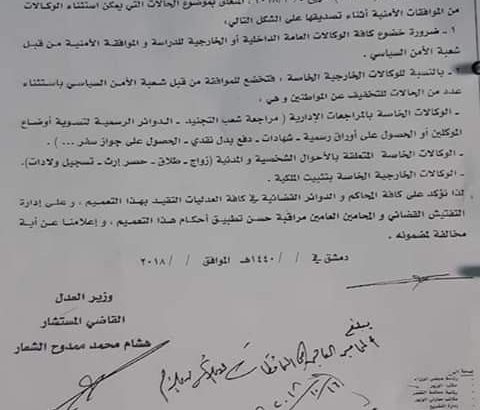 المتعلق بموضوع الحالات التي يمكن استثناء الوكالات
من الموافقات الأمنية أثناء تصديقها على الشكل التالي:
١ ـ ضرورة خضوع كافة الوكالات العامة الداخلية أو الخارجية للدراسة و الموافقة الأمنية من قبل
شعبة الأمن السياسي .
بالنسبة للوكالات الخارجية الخاصة ، فتخضع للموافقة من قبل شعبة الأمن السياسي باستثناء
عدد من الحالات للتخفيف عن المواطنين و هي ،
ـ الوكالات الخاصة بالمراجعات الإدارية ( مراجعة شعب التجنيد ـ الدوائر الرسمية لتسوية أوضاع
الموكلين أو الحصول على أوراق رسمية ـ شهادات ـ دفع بدل نقدي ـ الحصول على جواز سفر ... ) .
ـ الوكالات الخاصة المتعلقة بالأحوال الشخصية و المدنية (زواج ـ طلاق ـ حصر إرث ـ تسجيل ولادات).
ـ الوكالات الخارجية الخاصة بتثبيت الملكية .
لذا نؤكد على كافة المحاكم و الدوائر القضائية في كافة العدليات التقيد بهذا التعميم ، و على إدارة
التفتيش القضائي و المحامين العامين مراقبة حسن تطبيق أحكام هذا التعميم ، و إعلامنا عن أية
مخالفة لمضمونه .
دمشق في / / ١٤٤٠هـ الموافق / / ٢٠١٨
وزير العدل
القاضي المستشار
هشام محمد ممدوح الشعار